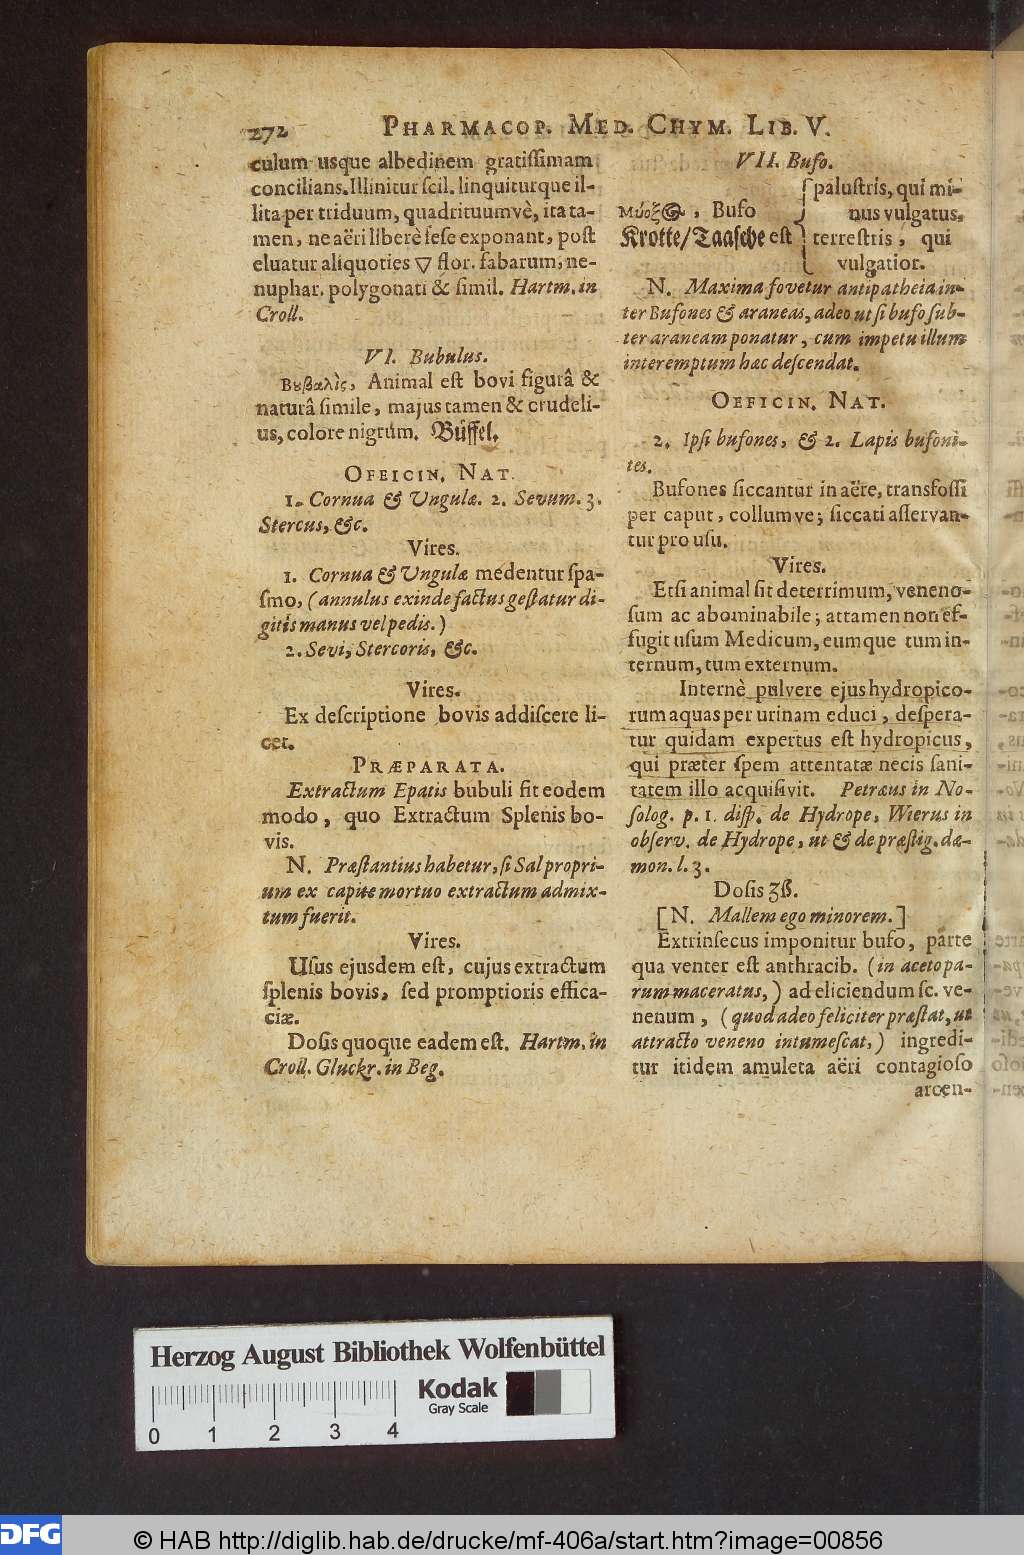 272 PHARMACOP. MED. CHYM. LIB. V.
culum usque albedinem gratiſſimam
concilians. Illinitur ſcil. linquiturque il-
lita per triduum, quadrituumvè, ita ta-
men, ne aëri liberè ſeſe exponant, poſt
eluatur aliquoties ▽ flor. fabarum, ne-
nuphar. polygonati & ſimil. Hartm. in
Croll.
VI. Bubulus.
Βȣβαλὶς, Animal eſt bovi figurâ &
naturâ ſimile, majus tamen & crudeli-
us, colore nigrum. Büffel.
OFFICIN. NAT.
1. Cornua & Ungulæ. 2. Sevum. 3.
Stercus, &c.
Vires.
1. Cornua & Ungulæ medentur ſpa-
ſmo, (annulus exinde factus geſtatur di-
gitis manus vel pedis.)
2. Sevi, Stercoris, &c.
Vires.
Ex deſcriptione bovis addiſcere li-
cet.
PRÆPARATA.
Extractum Epatis bubuli fit eodem
modo, quo Extractum Splenis bo-
vis.
N. Præſtantius habetur, ſi Sal propri-
um ex capite mortuo extractum admix-
tum fuerit.
Vires.
Uſus ejusdem eſt, cujus extractum
ſplenis bovis, ſed promptioris effica-
ciæ.
Doſis quoque eadem eſt. Hartm. in
Croll. Gluckr. in Beg.
VII. Bufo.
paluſtris, qui mi-
, Bufo nus vulgatus.
Krotte/Taaſche eſt terreſtris, qui
vulgatior.
N. Maxima fovetur antipatheia in-
ter Bufones & araneas, adeo ut ſi bufo ſub-
ter araneam ponatur, cum impetu illum
interemptum hæc deſcendat.
OFFICIN. NAT.
2. Ipſi bufones, & 2. Lapis bufoni-
tes.
Bufones ſiccantur in aëre, transfoſſi
per caput, collumve; ſiccati aſſervan-
tur pro uſu.
Vires.
Etſi animal ſit deterrimum, veneno-
ſum ac abominabile; attamen non ef-
fugit uſum Medicum, eumque tum in-
ternum, tum externum.
Internè pulvere ejus hydropico-
rum aquas per urinam educi, deſpera-
tur quidam expertus eſt hydropicus,
qui præter ſpem attentatæ necis ſani-
tatem illo acquiſivit. Petræus in No-
ſolog. p. 1. diſp. de Hydrope, Wierus in
obſerv. de Hydrope, ut & de præſtig. dæ-
mon. l. 3.
Doſis ʒß.
[N. Mallem ego minorem.]
Extrinſecus imponitur bufo, parte
qua venter eſt anthracib. (in aceto pa-
rum maceratus,) ad eliciendum ſc. ve-
nenum, (quod adeo feliciter præſtat, ut
attracto veneno intumeſcat,) ingredi-
tur itidem amuleta aëri contagioſo
arcen-
Herzog August Bibliothek Wolfenbüttel
Kodak
Gray Scale
0 1 2 3 4
DFG © HAB http://diglib.hab.de/drucke/mf-406a/start.htm?image=00856